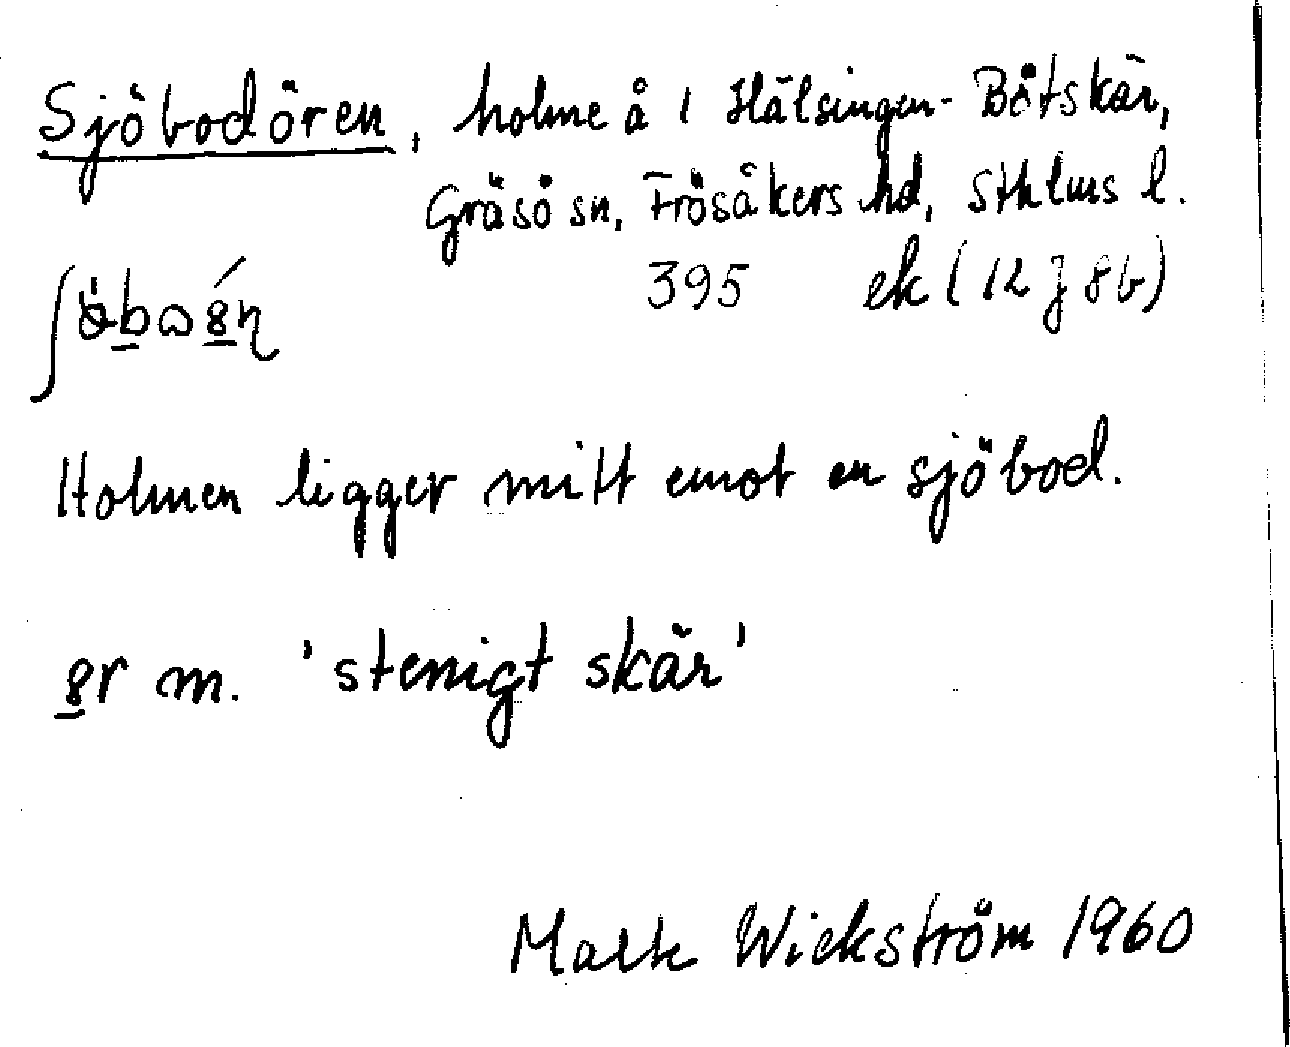 Sjöbodören, holme å 1 Hälsingen-Båtskär,
Gräsö sn, Frösåkers hd, Sthlms l.
395 ek (12 J 8b)
Holmen ligger mitt emot en sjöbod.
m. 'stenigt skär'
Wickström 1960